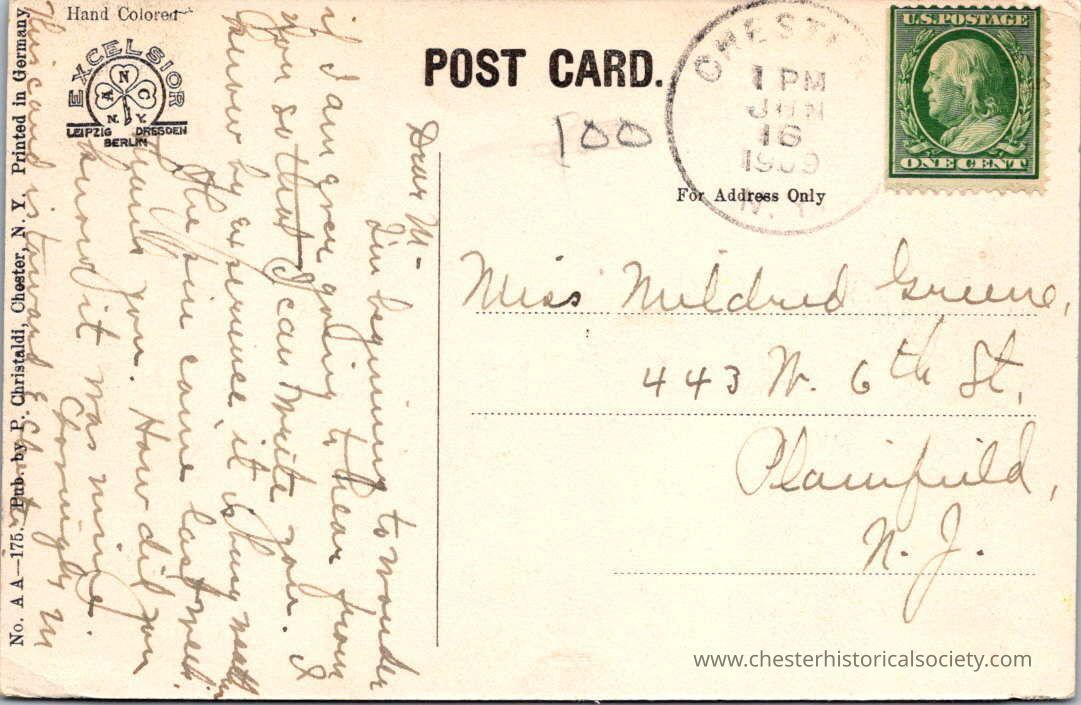 Hand Colored
EXCELSIOR
A N C
N. Y.
LEIPZIG DRESDEN
BERLIN
No. A A—175. Pub. by P. Christaldi, Chester, N. Y. Printed in Germany.
POST CARD.
100
CHESTER
1 PM
JUN
16
1909
N.Y.
U.S. POSTAGE
ONE CENT
For Address Only
Miss Mildred Greene,
443 W. 6th St,
Plainfield,
N. J.
Dear M-
I'm beginning to wonder
if I am ever going to hear from
you so that I can write you. I
know by experience it is busy
The pin came last week.
Thank you. How did you
know it was mine.
Lovingly M
This card is toward
www.chesterhistoricalsociety.com